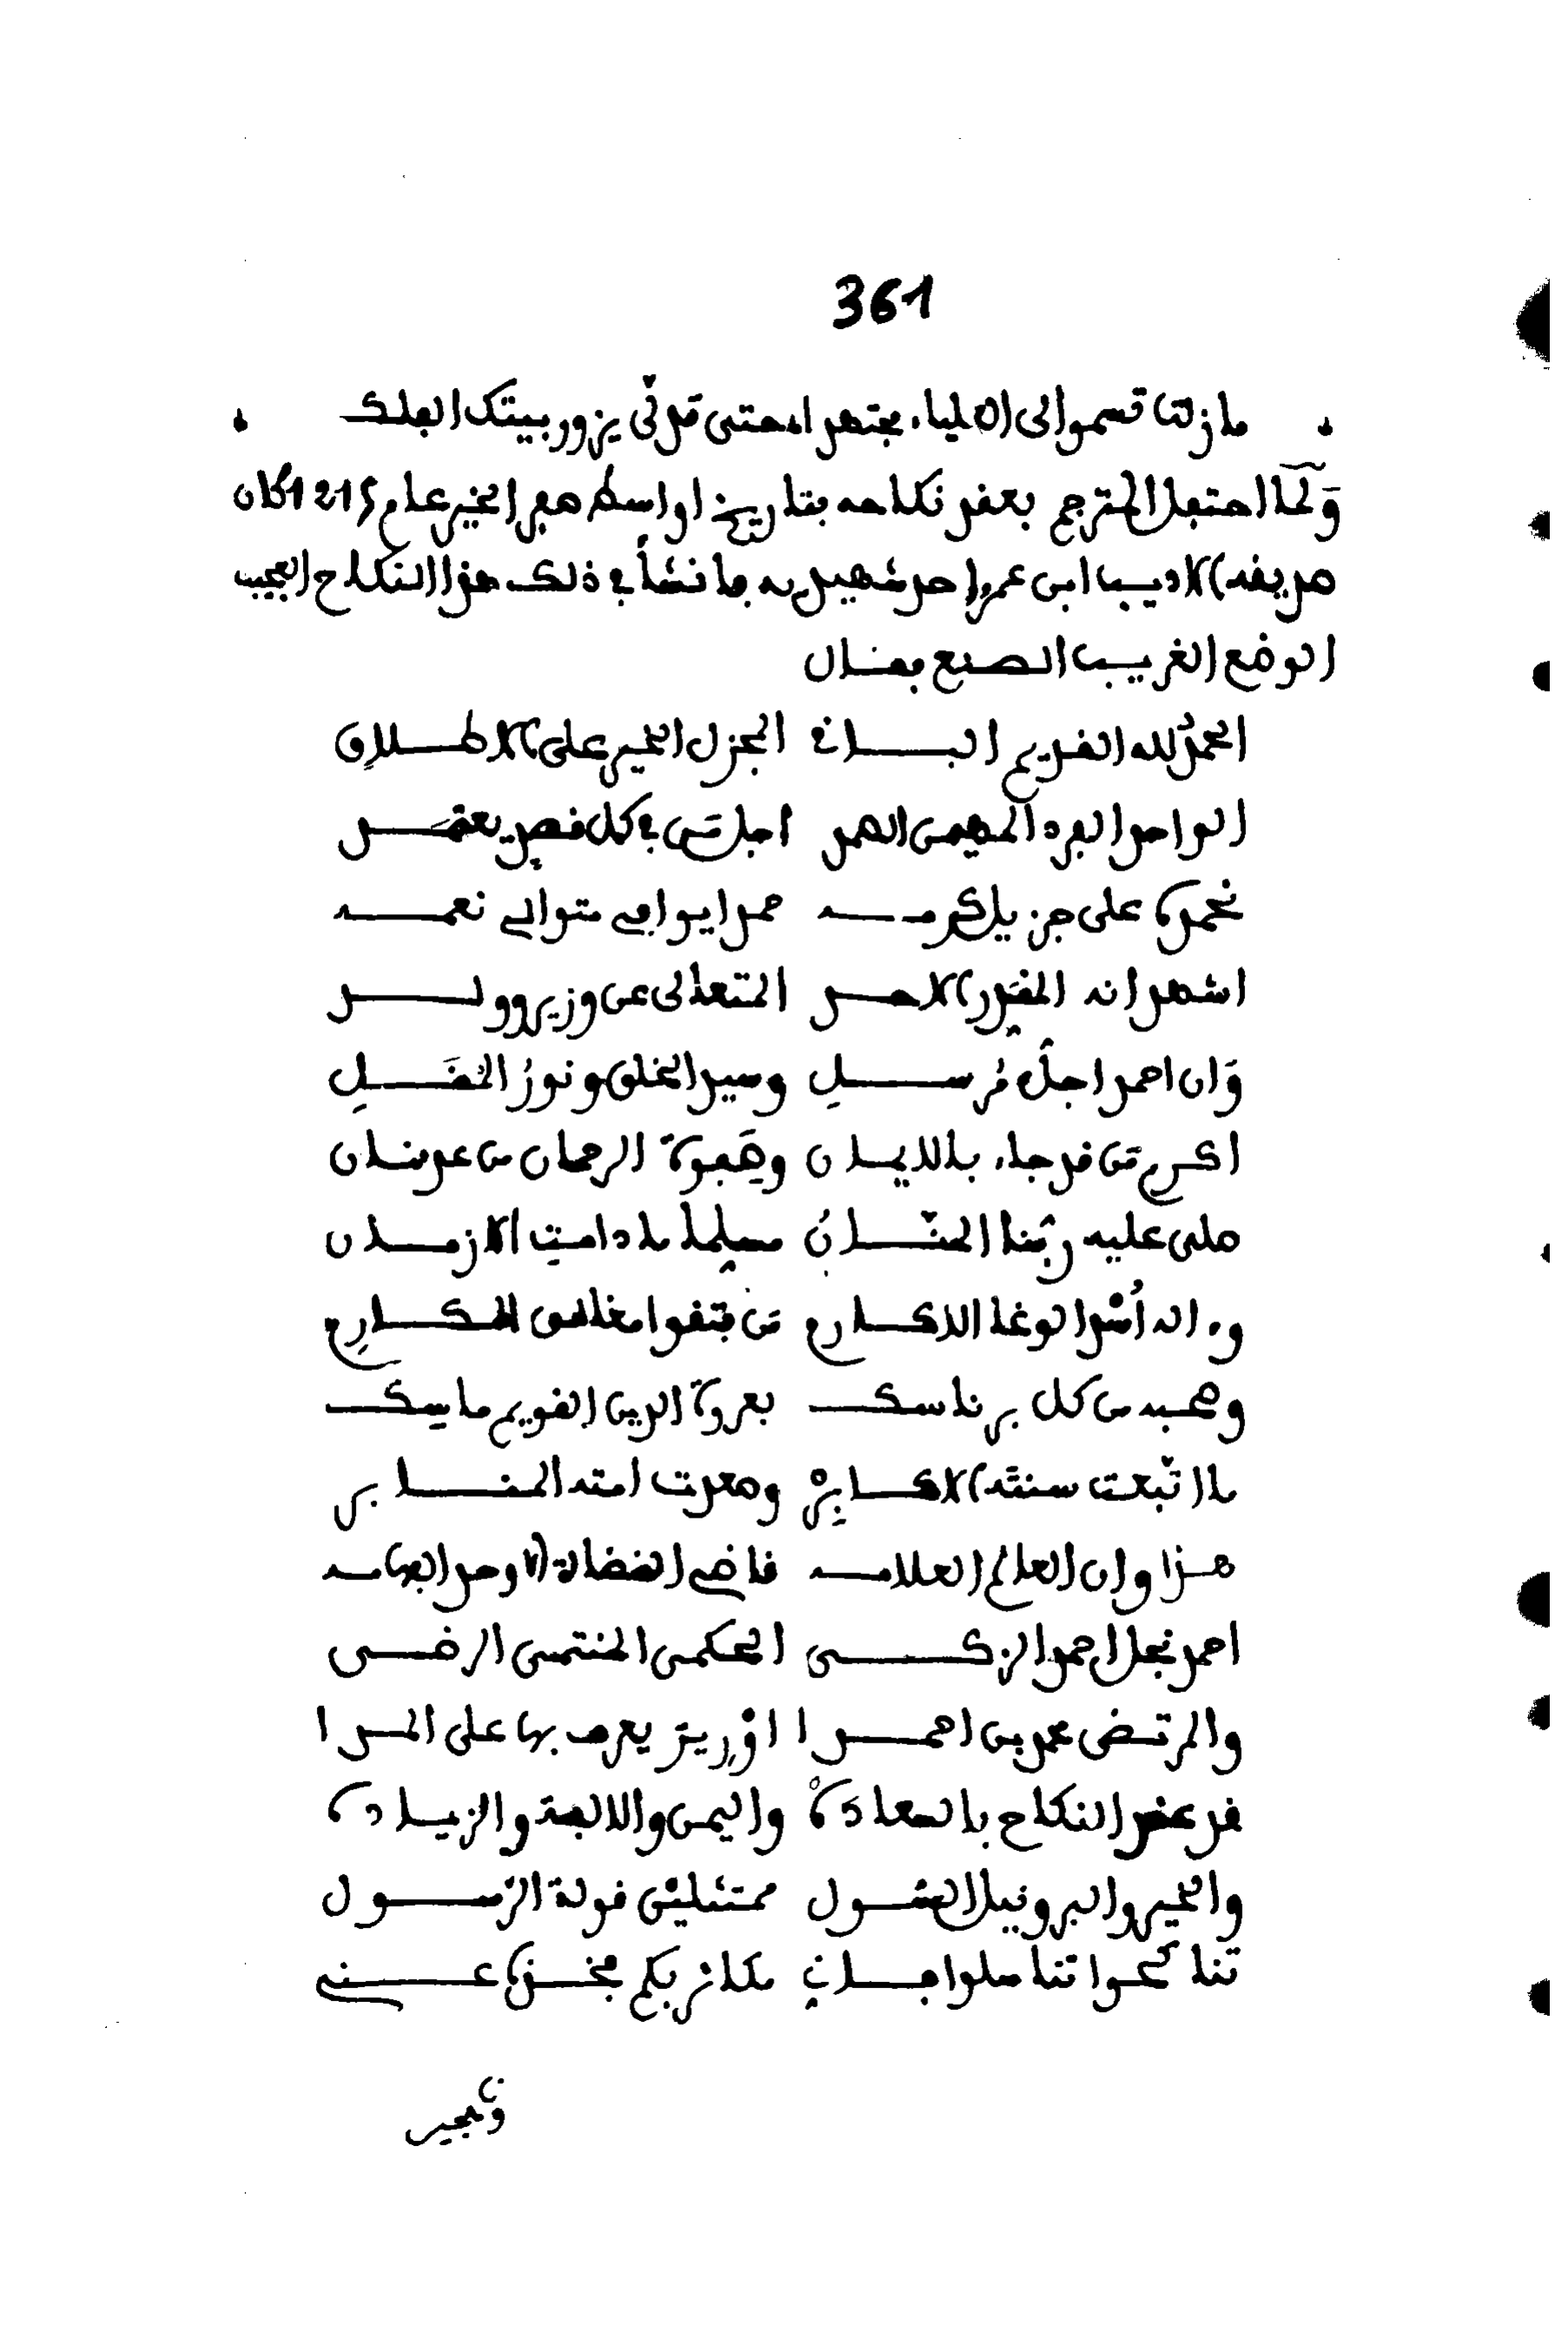 361
ما زلت تسموا الى العلياء مجتهدا حتى تدلى يزور بيتك الفلك
وَلما احتفل المترجم بعقد نكاحه بتاريخ اواسط صفر الخير عام 1215 كان
صديقه الاديب ابى عمر احد شهيديه فانشأ في ذلك هذا النكاح العجيب
الوضع الغريب الصنع فقال
الحمدُ لله القديم الباق المجزل الخير على الاطلاق
الواحد الفرد المهيمن الصمد اجل مَن في كل قصدٍ يعتمَد
نحمده على جزيل كرمه حمدا يوافي متوالي نعمه
اشهد انه المقتدر الاحد المتعالى عن وزير وولد
وَان احمد اجلّ مُرسل وسيد الخلق ونورُ المقَل
اكرم مَن قد جاء بالايمان وصَفوة الرحمان من عدنان
صلى عليه ربّنا المنّانُ مسلما ما دامت الازمان
وءاله أسْد الوغا الاكارم مَن قتفوا مغانم المكارِم
وصحبه من كل بر ناسك بعروة الدين القويم ماسك
ما اتّبعت سنته الاكابِرْ وصعدت امته المنابر
هذا وان العالم العلامه قاضي القضاة الاوحد الفهامه
احمد نجل احمد الزكى الحكمى المنتمى الرضى
والمرتضى محمد بن احمدا ادْريز يعرف بها على المدا
قد عقد النكاح بالسعادَهْ واليمن والالفة والزياده
والخير والبر ونيل السْول ممتثليْن قولة الرّسول
تناكحوا تناسلوا فانِ مكاثر بكم فخذه عنى
وَنجير